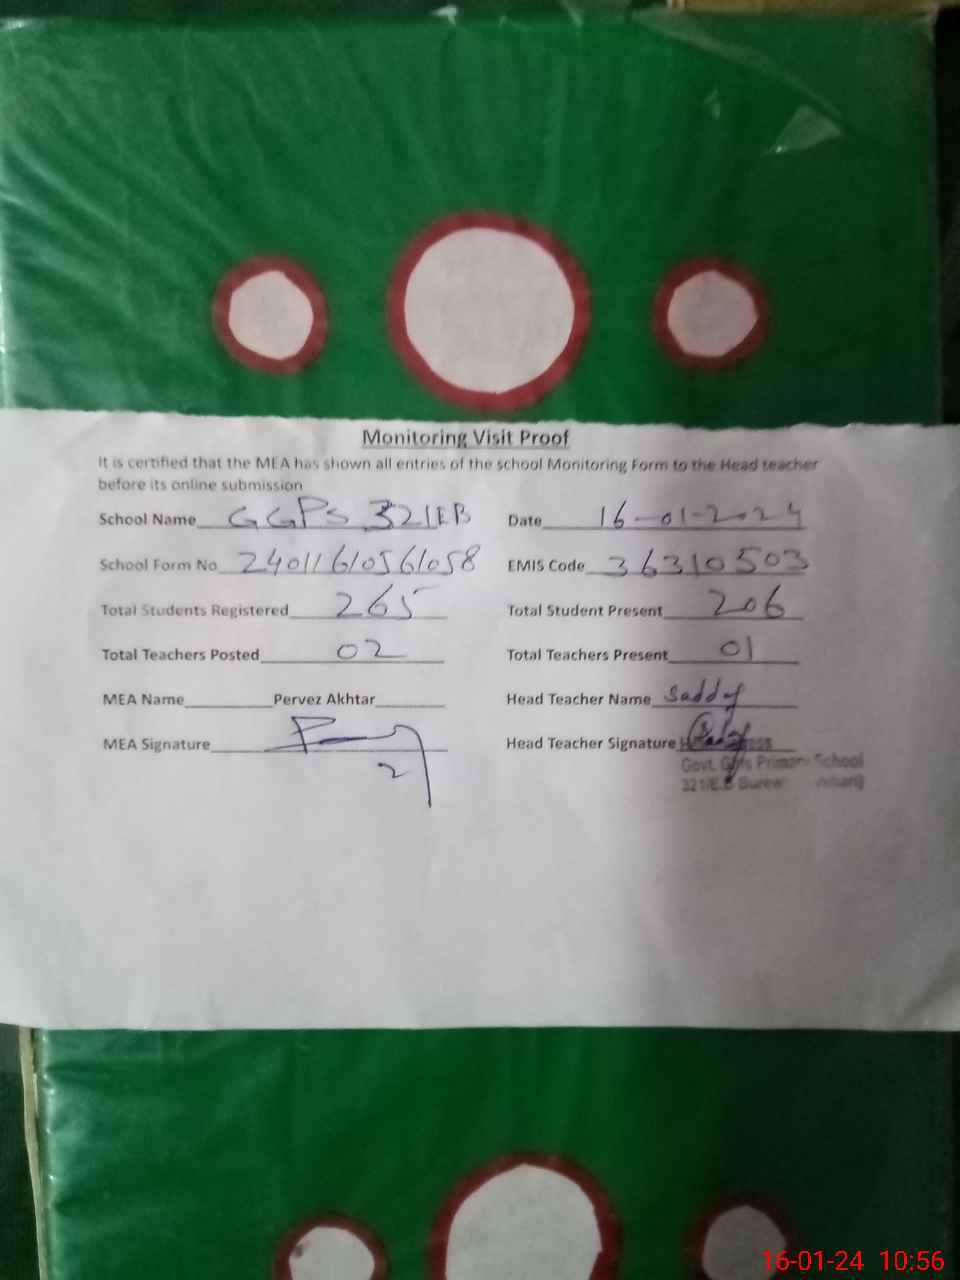 Monitoring Visit Proof
It is certified that the MEA has shown all entries of the school Monitoring Form to the Head teacher
before its online submission
School Name GGPS 321EB Date 16-01-2024
School Form No 24011610561058 EMIS Code 36310503
Total Students Registered 265 Total Student Present 206
Total Teachers Posted 02 Total Teachers Present 01
MEA Name Pervez Akhtar Head Teacher Name
MEA Signature Head Teacher Signature
Govt. Girls Primary School
321/E.B
16-01-24 10:56